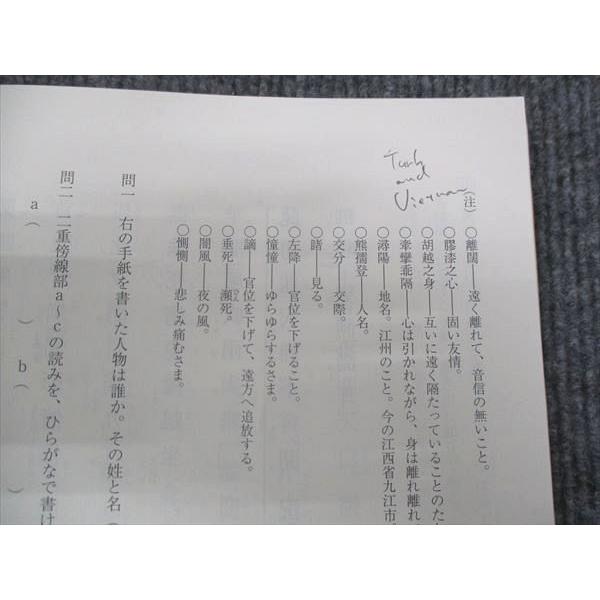 (注)
○離闊――遠く離れて、音信の無いこと。
○膠漆之心――固い友情。
○胡越之身――互いに遠く隔たっていることのた
○牽攣乖隔――心は引かれながら、身は離れ離れ
○潯陽――地名。江州のこと。今の江西省九江市。
○熊孺登――人名。
○交分――交際。
○睹――見る。
○左降――官位を下げること。
○憧憧――ゆらゆらするさま。
○謫――官位を下げて、遠方へ追放する。
○垂死――瀕死。
○闇風――夜の風。
○惻惻――悲しみ痛むさま。
問一 右の手紙を書いた人物は誰か。その姓と名(
問二 二重傍線部a〜cの読みを、ひらがなで書け
a( ) b( )
and